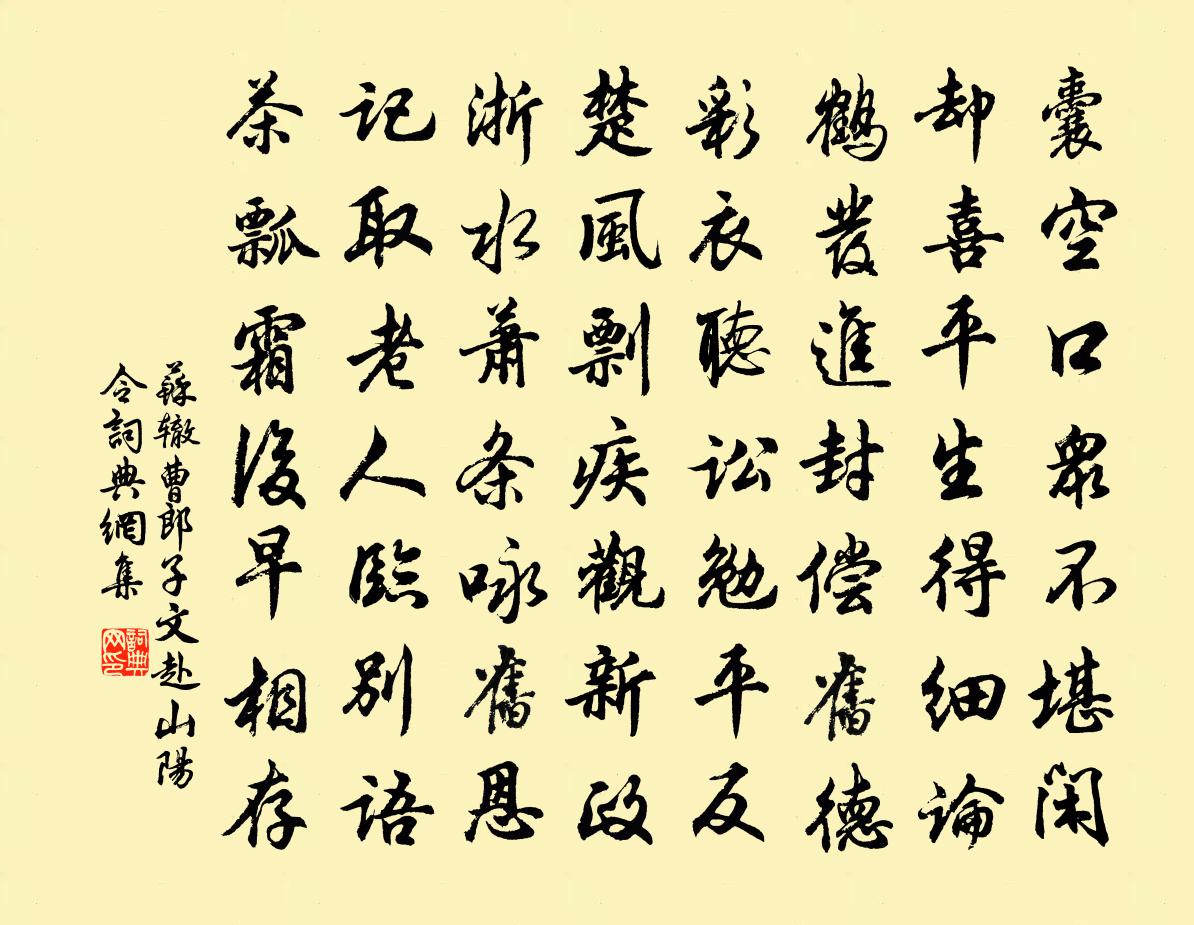 囊空口眾不堪閑
却喜平生得细論
鶴發進封偿舊德
彩衣聽訟勉平反
楚風剽疾觀新政
浙水萧条咏舊恩
记取老人臨别语
茶瓢霜後早相存
蘇辙曹郎子文赴山陽
令詞典網集
詞典
网印